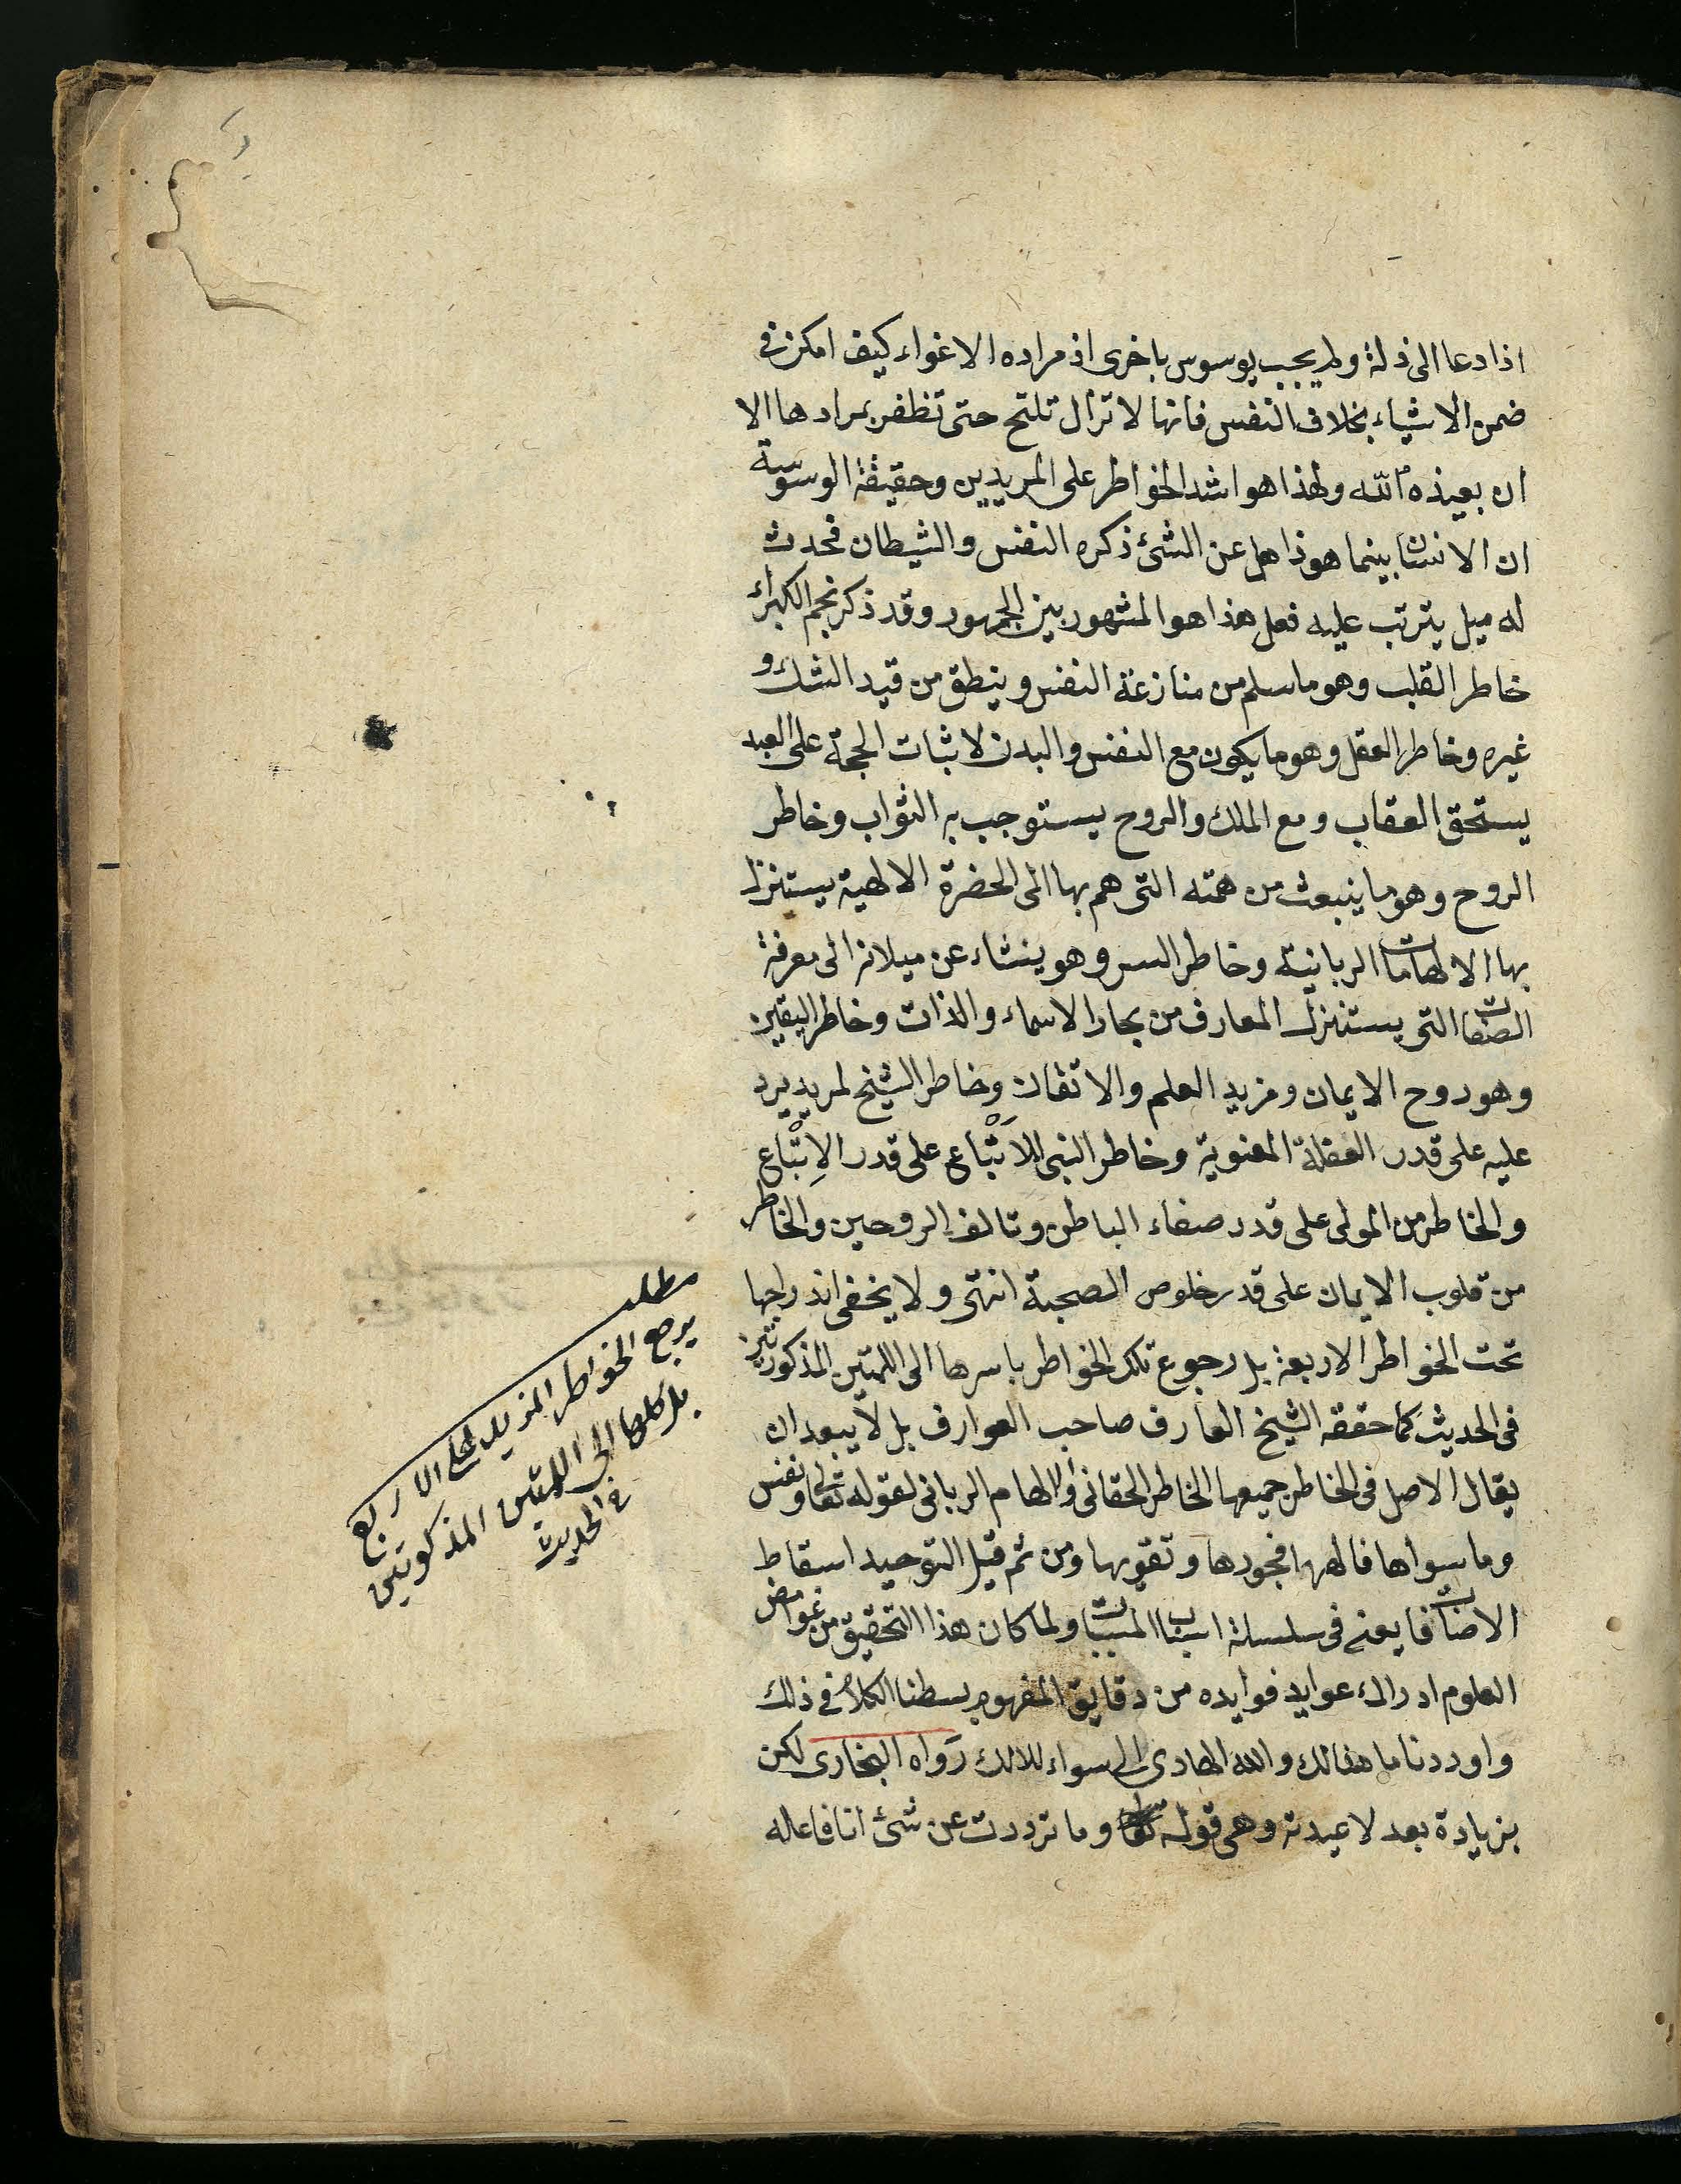 اذا دعا الى ذلة ولم يجب يوسوس باخرى اذ مراده الاغواء كيف امكن فى
ضمن الاشياء بخلاف النفس فانها لا تزال تلتح حتى تظفر بمرادها الا
ان بعيذه الله ولهذا هو اشد الخواطر على المريدين وحقيقة الوسوسة
ان الانسان بينما هو ذاهل عن الشئ ذكره النفس والشيطان فحدث
له ميل يترتب عليه فعل هذا هو المشهور بين الجمهور وقد ذكر نجم الكبراء
خاطر القلب وهو ما سلم من منازعة النفس وينطق من قيد الشك و
غيره وخاطر العقل وهو ما يكون مع النفس والبدن لاثبات الحجة على العبد
يستحق العقاب ومع الملك والروح يستوجب به الثواب وخاطر
الروح وهو ما ينبعث من همته التى هم بها الى الحضرة الالهية يستنزل
بها الالهامات الربانية وخاطر السر وهو ينشاء عن ميلانه الى معرفة
الصفات التى يستنزل المعارف من بحار الاسماء والذات وخاطر اليقين
وهو روح الايمان ومزيد العلم والاتقان وخاطر الشيخ لمريد يرد
عليه على قدر العقلة المعنوية وخاطر النبى للاَتْباع على قدر الاِتباع
والخاطر من المولى على قدر صفاء الباطن وتالف الروحين والخاطر
من قلوب الايمان على قدر خلوص الصحبة انتهى ولا يخفى اندراجها
تحت الخواطر الاربعة بل رجوع تلك الخواطر باسرها الى اللمتين المذكورتين
فى الحديث كما حققه الشيخ العارف صاحب العوارف بل لا يبعد ان
يقال الاصل فى الخاطر جميعها الخاطر الحقانى والالهام الربانى لقوله تعالى ونفس
وما سواها فالهمها فجورها وتقويها ومن ثم قيل التوحيد اسقاط
الاضافات يعنى فى سلسلة اسباب المسببات ولما كان هذا التحقيق من غوامض
العلوم ادراك عوايد فوايده من دقايق المفهوم بسطنا الكلام فى ذلك
واوردنا ما هنالك والله الهادى الى سواء للالك رواه البخارى لكن
بزيادة بعد لاعيدنه وهى قوله تعالى وما ترددت عن شئ انا فاعله
مطلب
يرجع الخواطر المزيدة على الاربع
بل كلها الى اللمتين المذكورتين
فى الحديث